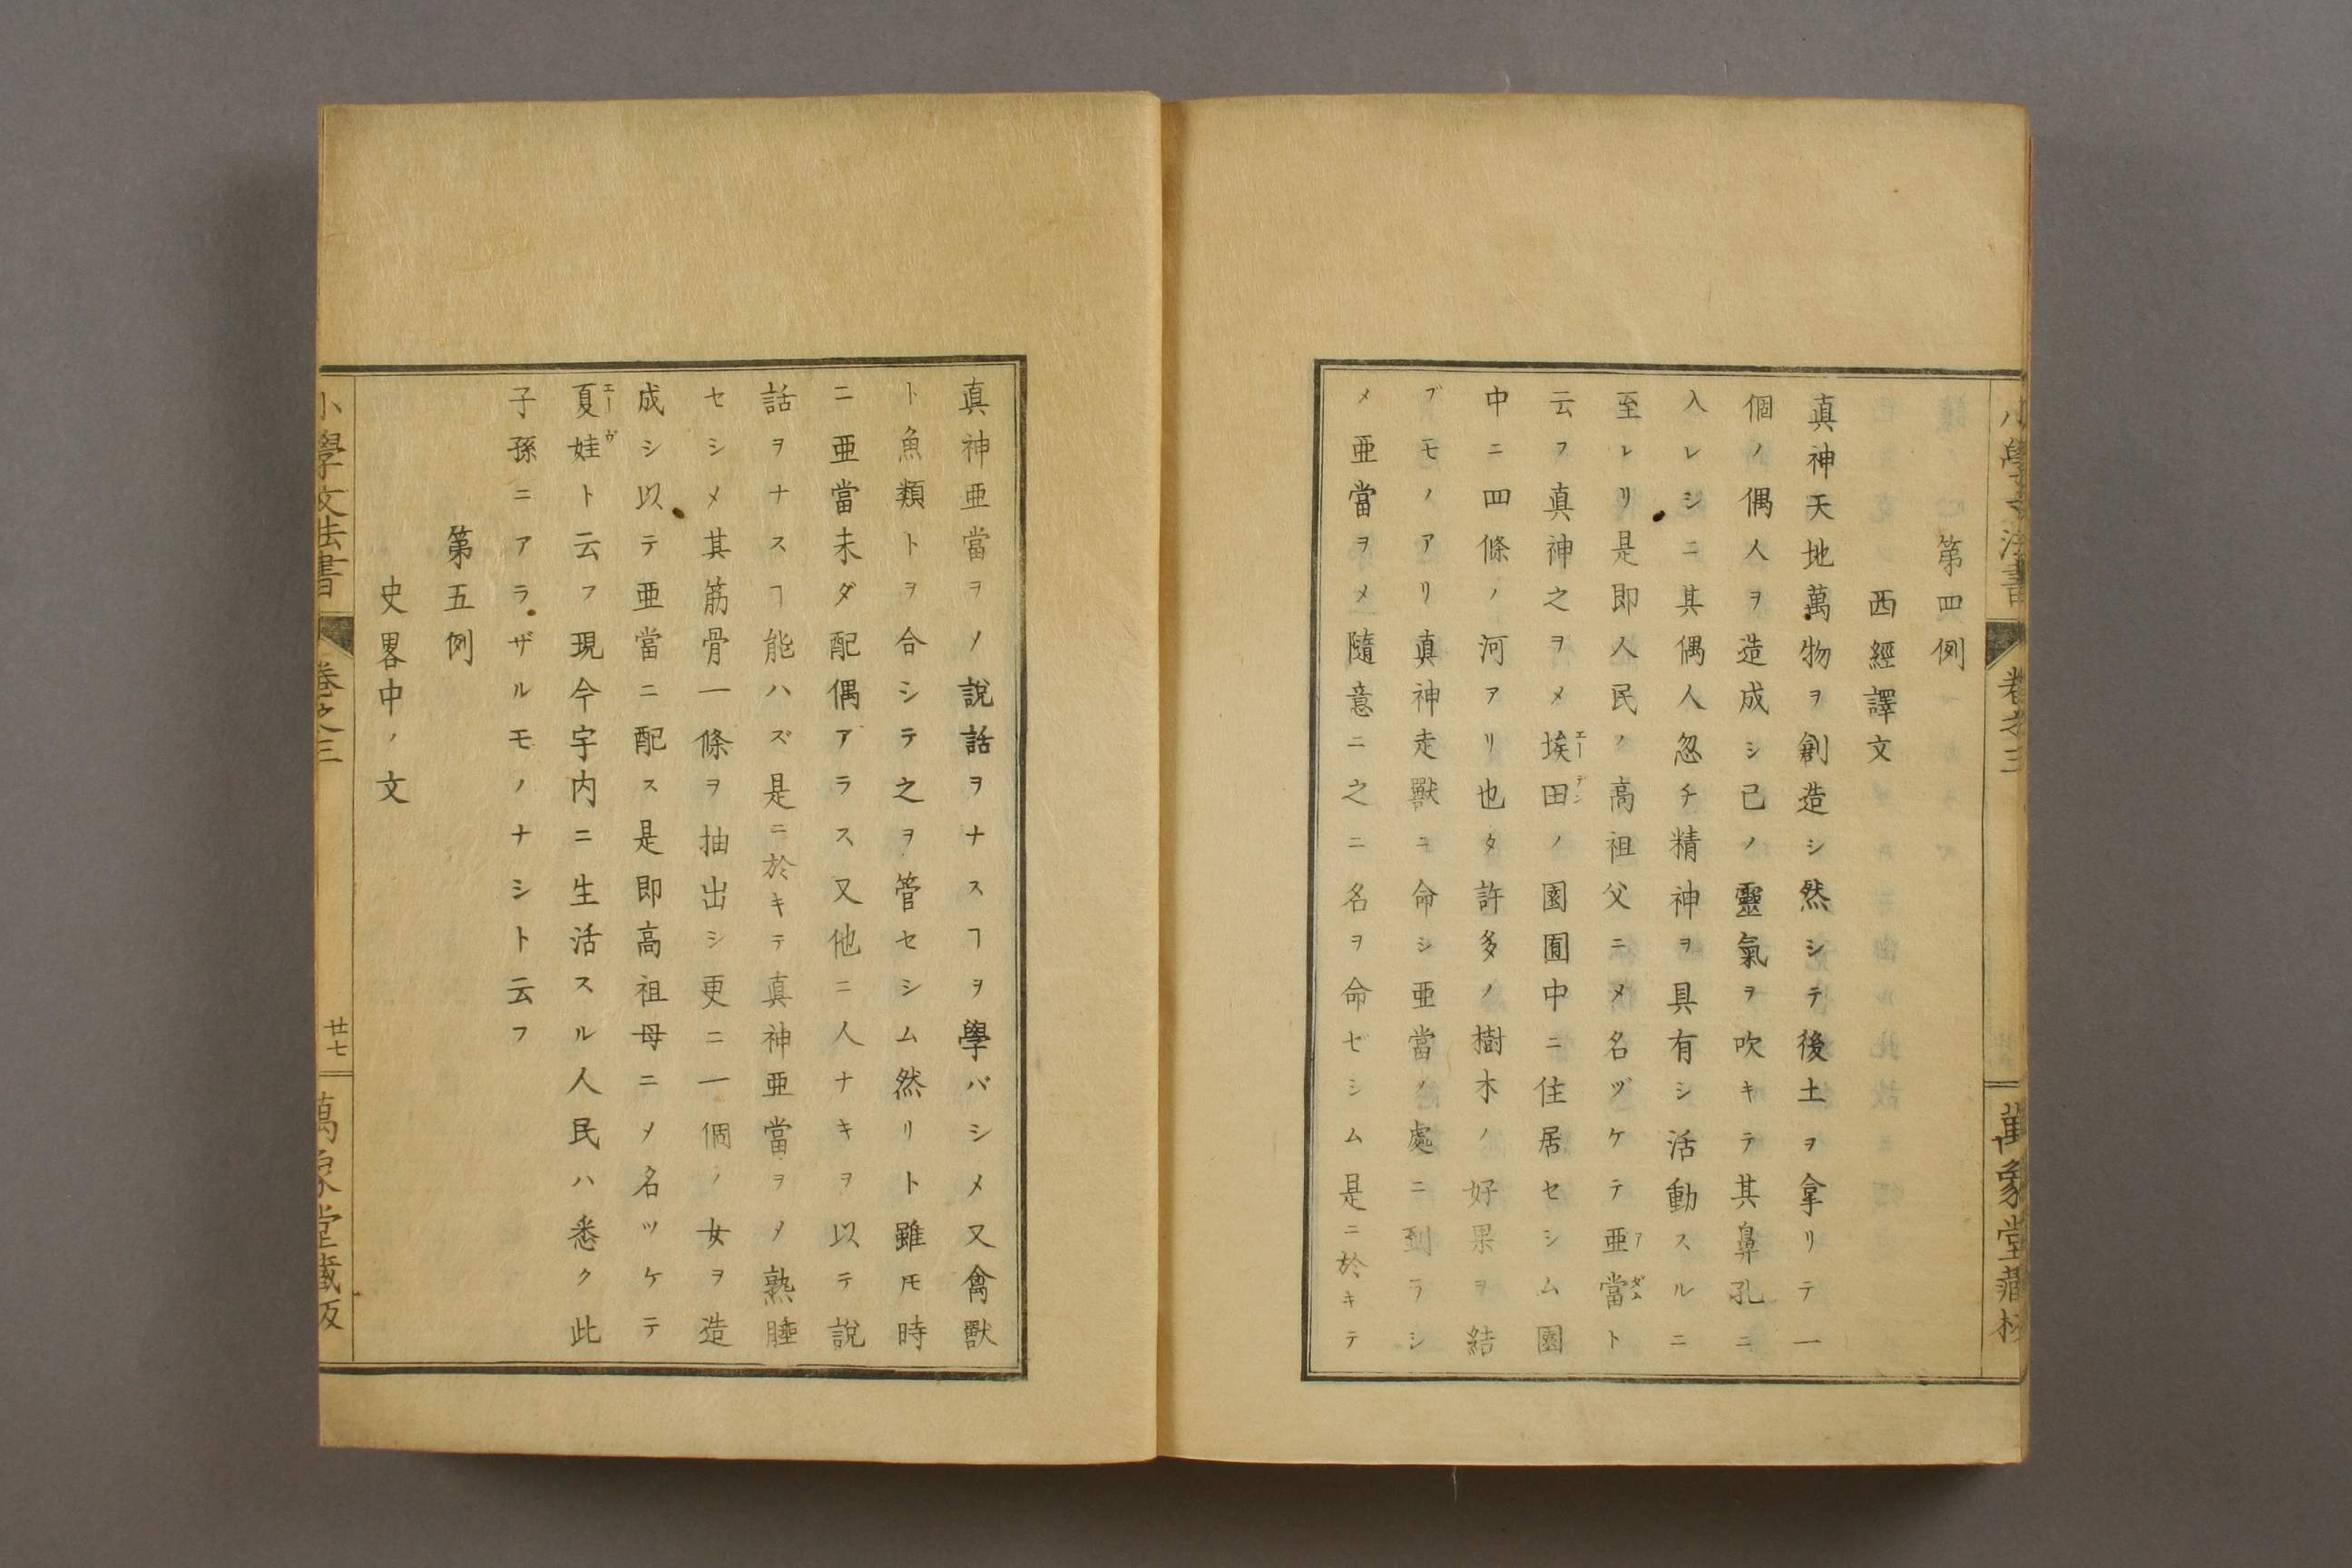 小學文法書 卷之三 萬象堂藏板
第四例
西經譯文
真神天地萬物ヲ創造シ然シテ後土ヲ拿リテ一
個ノ偶人ヲ造成シ己ノ靈氣ヲ吹キテ其鼻孔ニ
入レシニ其偶人忽チ精神ヲ具有シ活動スルニ
至レリ是即人民ノ高祖父ニメ名ヅケテ亜當アダムト
云フ真神之ヲメ埃田エーデンノ園囿中ニ住居セシム園
中ニ四條ノ河アリ也タ許多ノ樹木ノ好果ヲ結
ブモノアリ真神走獸ニ命シ亜當ノ處ニ到ラシ
メ亜當ヲメ隨意ニ之ニ名ヲ命ゼシム是ニ於キテ
真神亜當ヲノ說話ヲナスヿヲ學バシメ又禽獸
ト魚類トヲ合シテ之ヲ管セシム然リト雖𪜈時
ニ亜當未ダ配偶アラス又他ニ人ナキヲ以テ說
話ヲナスヿ能ハズ是ニ於キテ真神亜當ヲメ熟睡
セシメ其筋骨一條ヲ抽出シ更ニ一個ノ女ヲ造
成シ以テ亜當ニ配ス是即高祖母ニメ名ツケテ
夏娃エーヴト云フ現今宇内ニ生活スル人民ハ悉ク此
子孫ニアラザルモノナシト云フ
第五例
史畧中ノ文
小學文法書 卷之三 廿七 萬象堂藏板